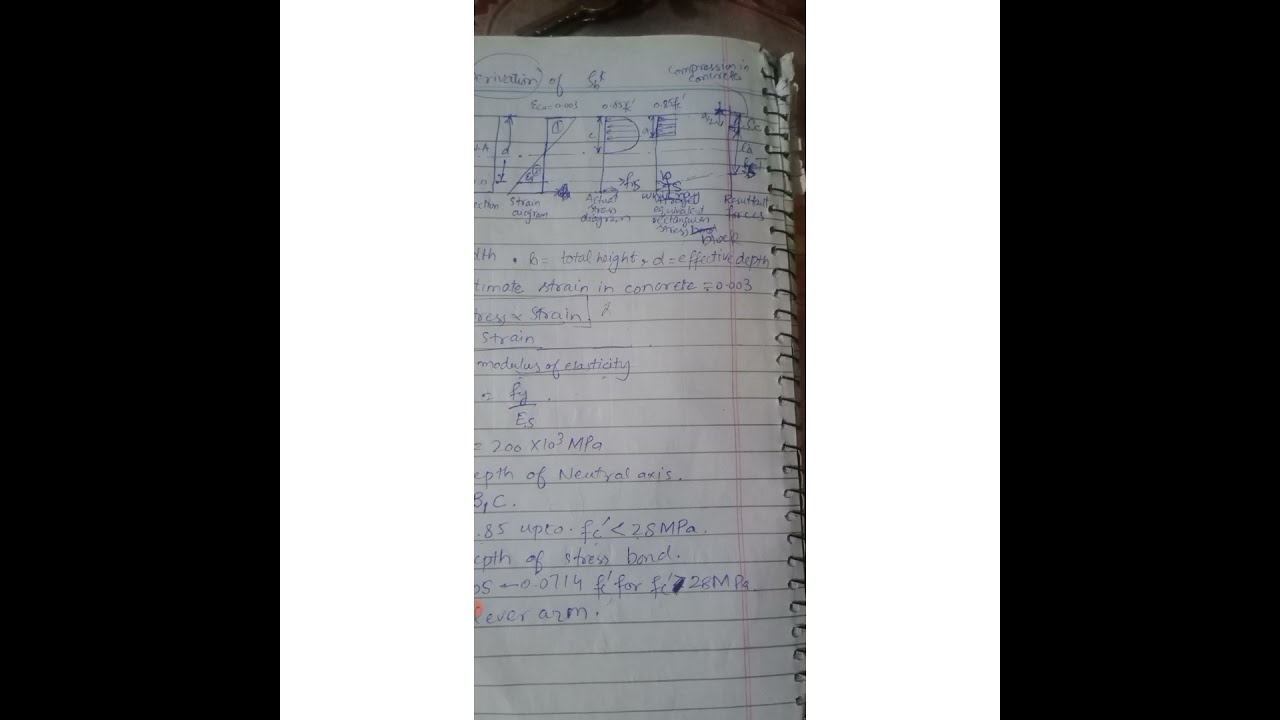 erivation of
Compression in
concrete
εcu=0.003 0.85fc' 0.85fc'
d c a a/2
ection Strain diagram Actual stress diagram equivalent rectangular stress block Resultant forces
dth • h = total height, d = effective depth
timate strain in concrete = 0.003
tress ∝ strain
strain
modulus of elasticity
= fy
Es
= 200 X10³ MPa
epth of Neutral axis.
β1C.
.85 upto. fc' < 28MPa.
epth of stress bond.
05 - 0.0714 fc' for fc' > 28MPa.
lever arm.